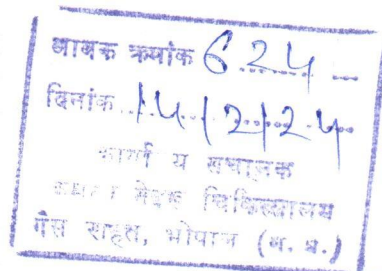 आवक क्रमांक 624
दिनांक 14/2/24
कार्या य संचालक
नेहरू चिकित्सालय
गैस राहत, भोपाल (म. प्र.)